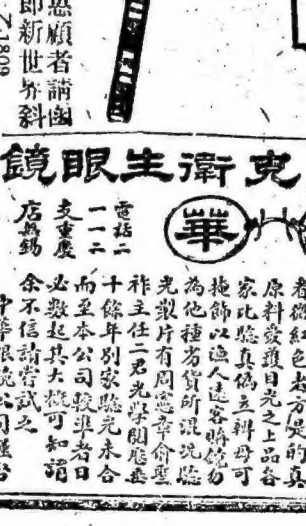 顧者請函
即新世界斜
Z-1809
克衛生眼鏡
華
電話二
一一二
支重慶
店無錫
看微紅色者方是的真
原料愛護日光之上品各
家比驗真偽立辨毋可
掩飾以遠客購鏡勿
為他種劣貨所混冼驗
光製片有周憲章俞
祚主任二君光學閱歷垂
十餘年別家驗光未合
而至本公司較準者日
必數起其大概可知謂
余不信請嘗試之
中華眼鏡公司謹啓